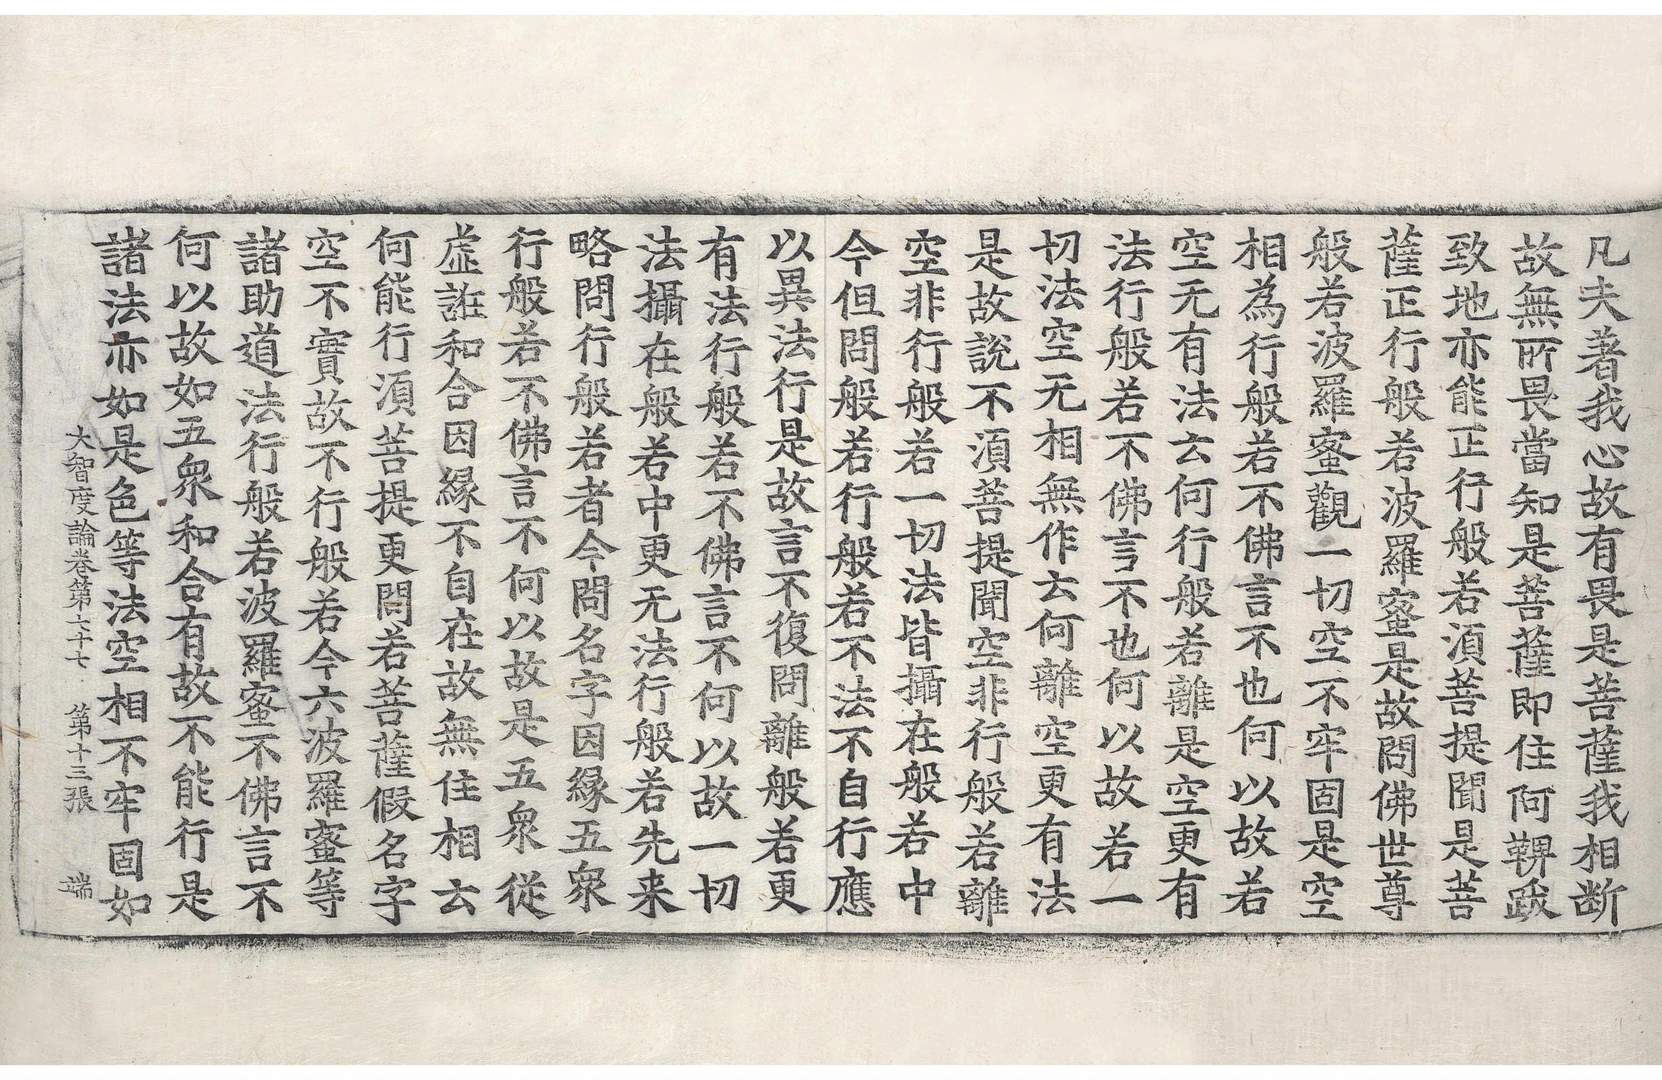 凡夫著我心故有畏是菩薩我相断
故無所畏當知是菩薩即住阿鞞跋
致地亦能正行般若湏菩提聞是菩
薩正行般若波羅蜜是故問佛世尊
般若波羅蜜觀一切空不牢固是空
相為行般若不佛言不也何以故若
空无有法云何行般若離是空更有
法行般若不佛言不也何以故若一
切法空无相無作云何離空更有法
是故說不湏菩提聞空非行般若離
空非行般若一切法皆攝在般若中
今但問般若行般若不法不自行應
以異法行是故言不復問離般若更
有法行般若不佛言不何以故一切
法攝在般若中更无法行般若先来
略問行般若者今問名字因緣五衆
行般若不佛言不何以故是五衆從
虛誑和合因緣不自在故無住相云
何能行湏菩提更問若菩薩假名字
空不實故不行般若今六波羅蜜等
諸助道法行般若波羅蜜不佛言不
何以故如五衆和合有故不能行是
諸法亦如是色等法空相不牢固如
大智度論卷第六十七 第十三張 端